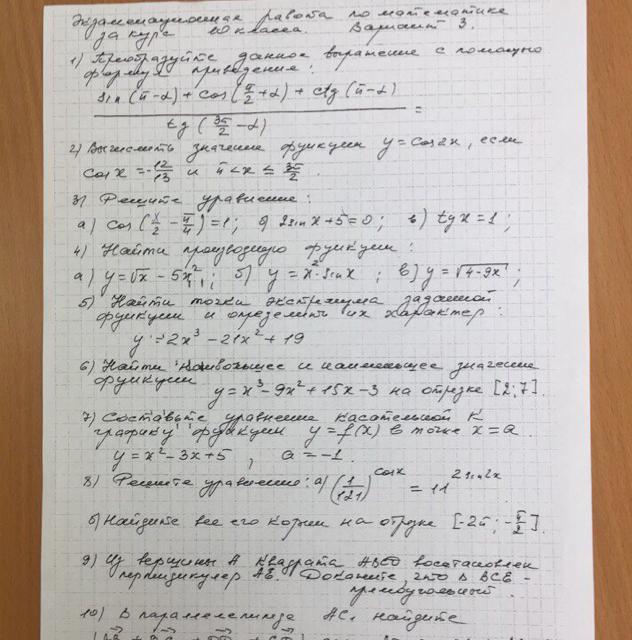 Экзаменационная работа по математике
за курс 10 класса. Вариант 3.
1) Преобразуйте данное выражение с помощью
формул приведения:
sin(π-α)+cos(π/2+α)+ctg(π-α)
tg(3π/2-α) =
2) Вычислить значение функции y=cos2x, если
cosx=-12/13 и π<x≤3π/2.
3) Решите уравнение:
а) cos(x/2-π/4)=1; б) 2sinx+5=0; в) tgx=1;
4) Найти производную функции:
а) y=√x-5x²; б) y=x²·sinx; в) y=√4-9x;
5) Найти точки экстремума заданной
функции и определить их характер:
y=2x³-21x²+19
6) Найти наибольшее и наименьшее значение
функции
y=x³-9x²+15x-3 на отрезке [2;7].
7) Составьте уравнение касательной к
графику функции y=f(x) в точке x=a
y=x²-3x+5, a=-1.
8) Решите уравнение: а) (1/121)^cosx = 11^2sin2x
б) Найдите все его корни на отрезке [-2π;-π/2].
9) Из вершины А квадрата ABCD восстановлен
перпендикуляр AE. Докажите, что Δ BCE -
прямоугольный.
10) В параллелепипеде AC₁ найдите